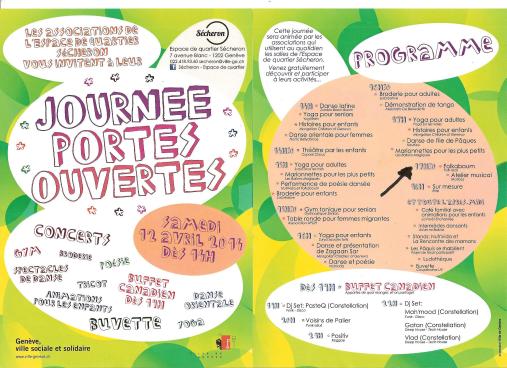 LES ASSOCIATIONS DE
L'ESPACE DE QUARTIER
SÉCHERON
VOUS INVITENT À LEUR
Sécheron
Espace de quartier Sécheron
7 avenue Blanc - 1202 Genève
Sécheron - Espace de quartier
JOURNEE
PORTES
OUVERTES
SAMEDI
12 AVRIL 2014
DÈS 14H
CONCERTS
GYM
BRODERIE
POÉSIE
SPECTACLES
DE DANSE
TRICOT
BUFFET
CANADIEN
DÈS 19H
ANIMATIONS
POUR LES ENFANTS
DANSE
ORIENTALE
BUVETTE
YOGA
Genève,
ville sociale et solidaire
www.ville-geneve.ch
Cette journée
sera animée par les
associations qui
utilisent au quotidien
les salles de l'Espace
de quartier Sécheron.
Venez gratuitement
découvrir et participer
à leurs activités...
PROGRAMME
14H
Danse latine
Yoga pour seniors
Histoires pour enfants
Danse orientale pour femmes
Théâtre par les enfants
15H
Yoga pour adultes
Marionnettes pour les plus petits
Performance de poésie dansée
Broderie pour enfants
Gym tonique pour seniors
Table ronde pour femmes migrantes
16H
Yoga pour enfants
Danse et présentation
de Zagaan Sar
Danse et poésie
Broderie pour adultes
Démonstration de tango
17H
Yoga pour adultes
Histoires pour enfants
Danse de l'île de Pâques
Marionnettes pour les plus petits
Folkaboum
Atelier musical
18H
Sur mesure
ET TOUTE L'APRÈS-MIDI
Café tricot avec
animations pour les
enfants
Intermèdes dansés
Stands: Nutrimenta et
La Rencontre des mamans
Les Pâquis m'habitent
Ludothèque
Buvette
DÈS 19H - BUFFET CANADIEN
19H - Dj Set: PasteQ (Constellation)
20H - Voisins de Palier
21H - Positiv
Reggae
22H - Dj Set:
Mahmood (Constellation)
Gatan (Constellation)
Vlad (Constellation)